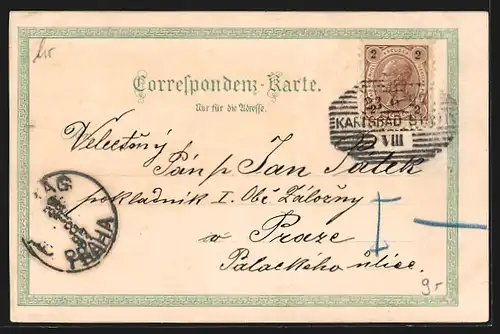 2 KREUZER 2
Correspondenz-Karte.
Nur für die Adresse.
KARLSBAD STADT
VIII
Velectěný
Pán p Jan Pátek
pokladník I. Obč Záložny
v Praze
Palackého ulice.
PRAG
PRAHA
I –
9-